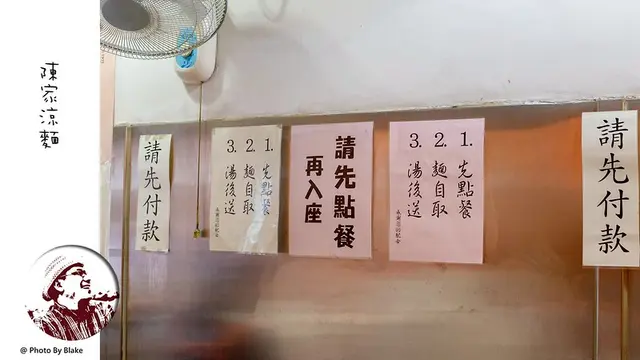 陳家涼麵
請先付款
1. 先點餐
2. 麵自取
3. 湯後送
請先點餐
再入座
1. 先點餐
2. 麵自取
3. 湯後送
請先付款
@ Photo By Blake